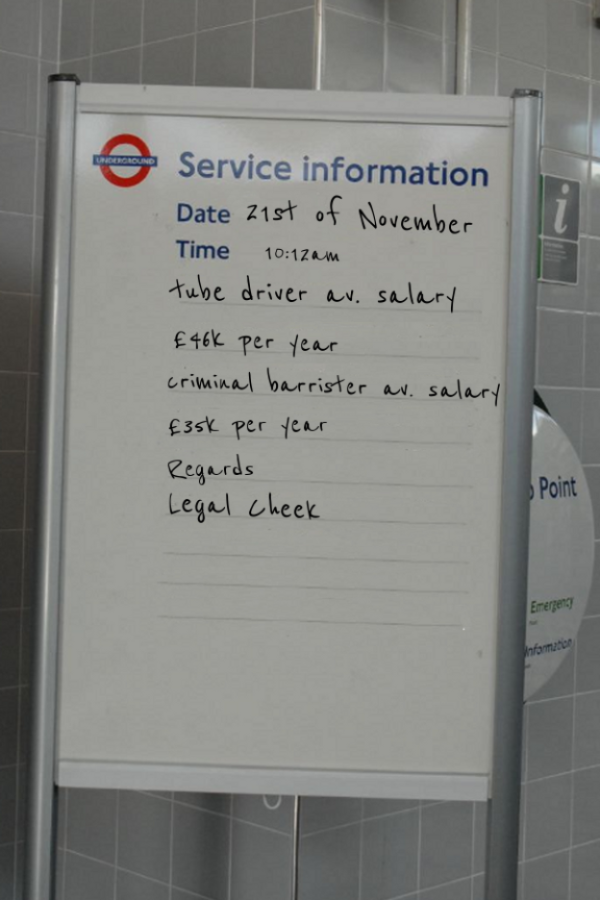 UNDERGROUND
Service information
Date 21st of November
Time 10:12am
tube driver av. salary
£46k per year
criminal barrister av. salary
£35k per year
Regards
Legal Cheek
i
Point
Emergency
Information